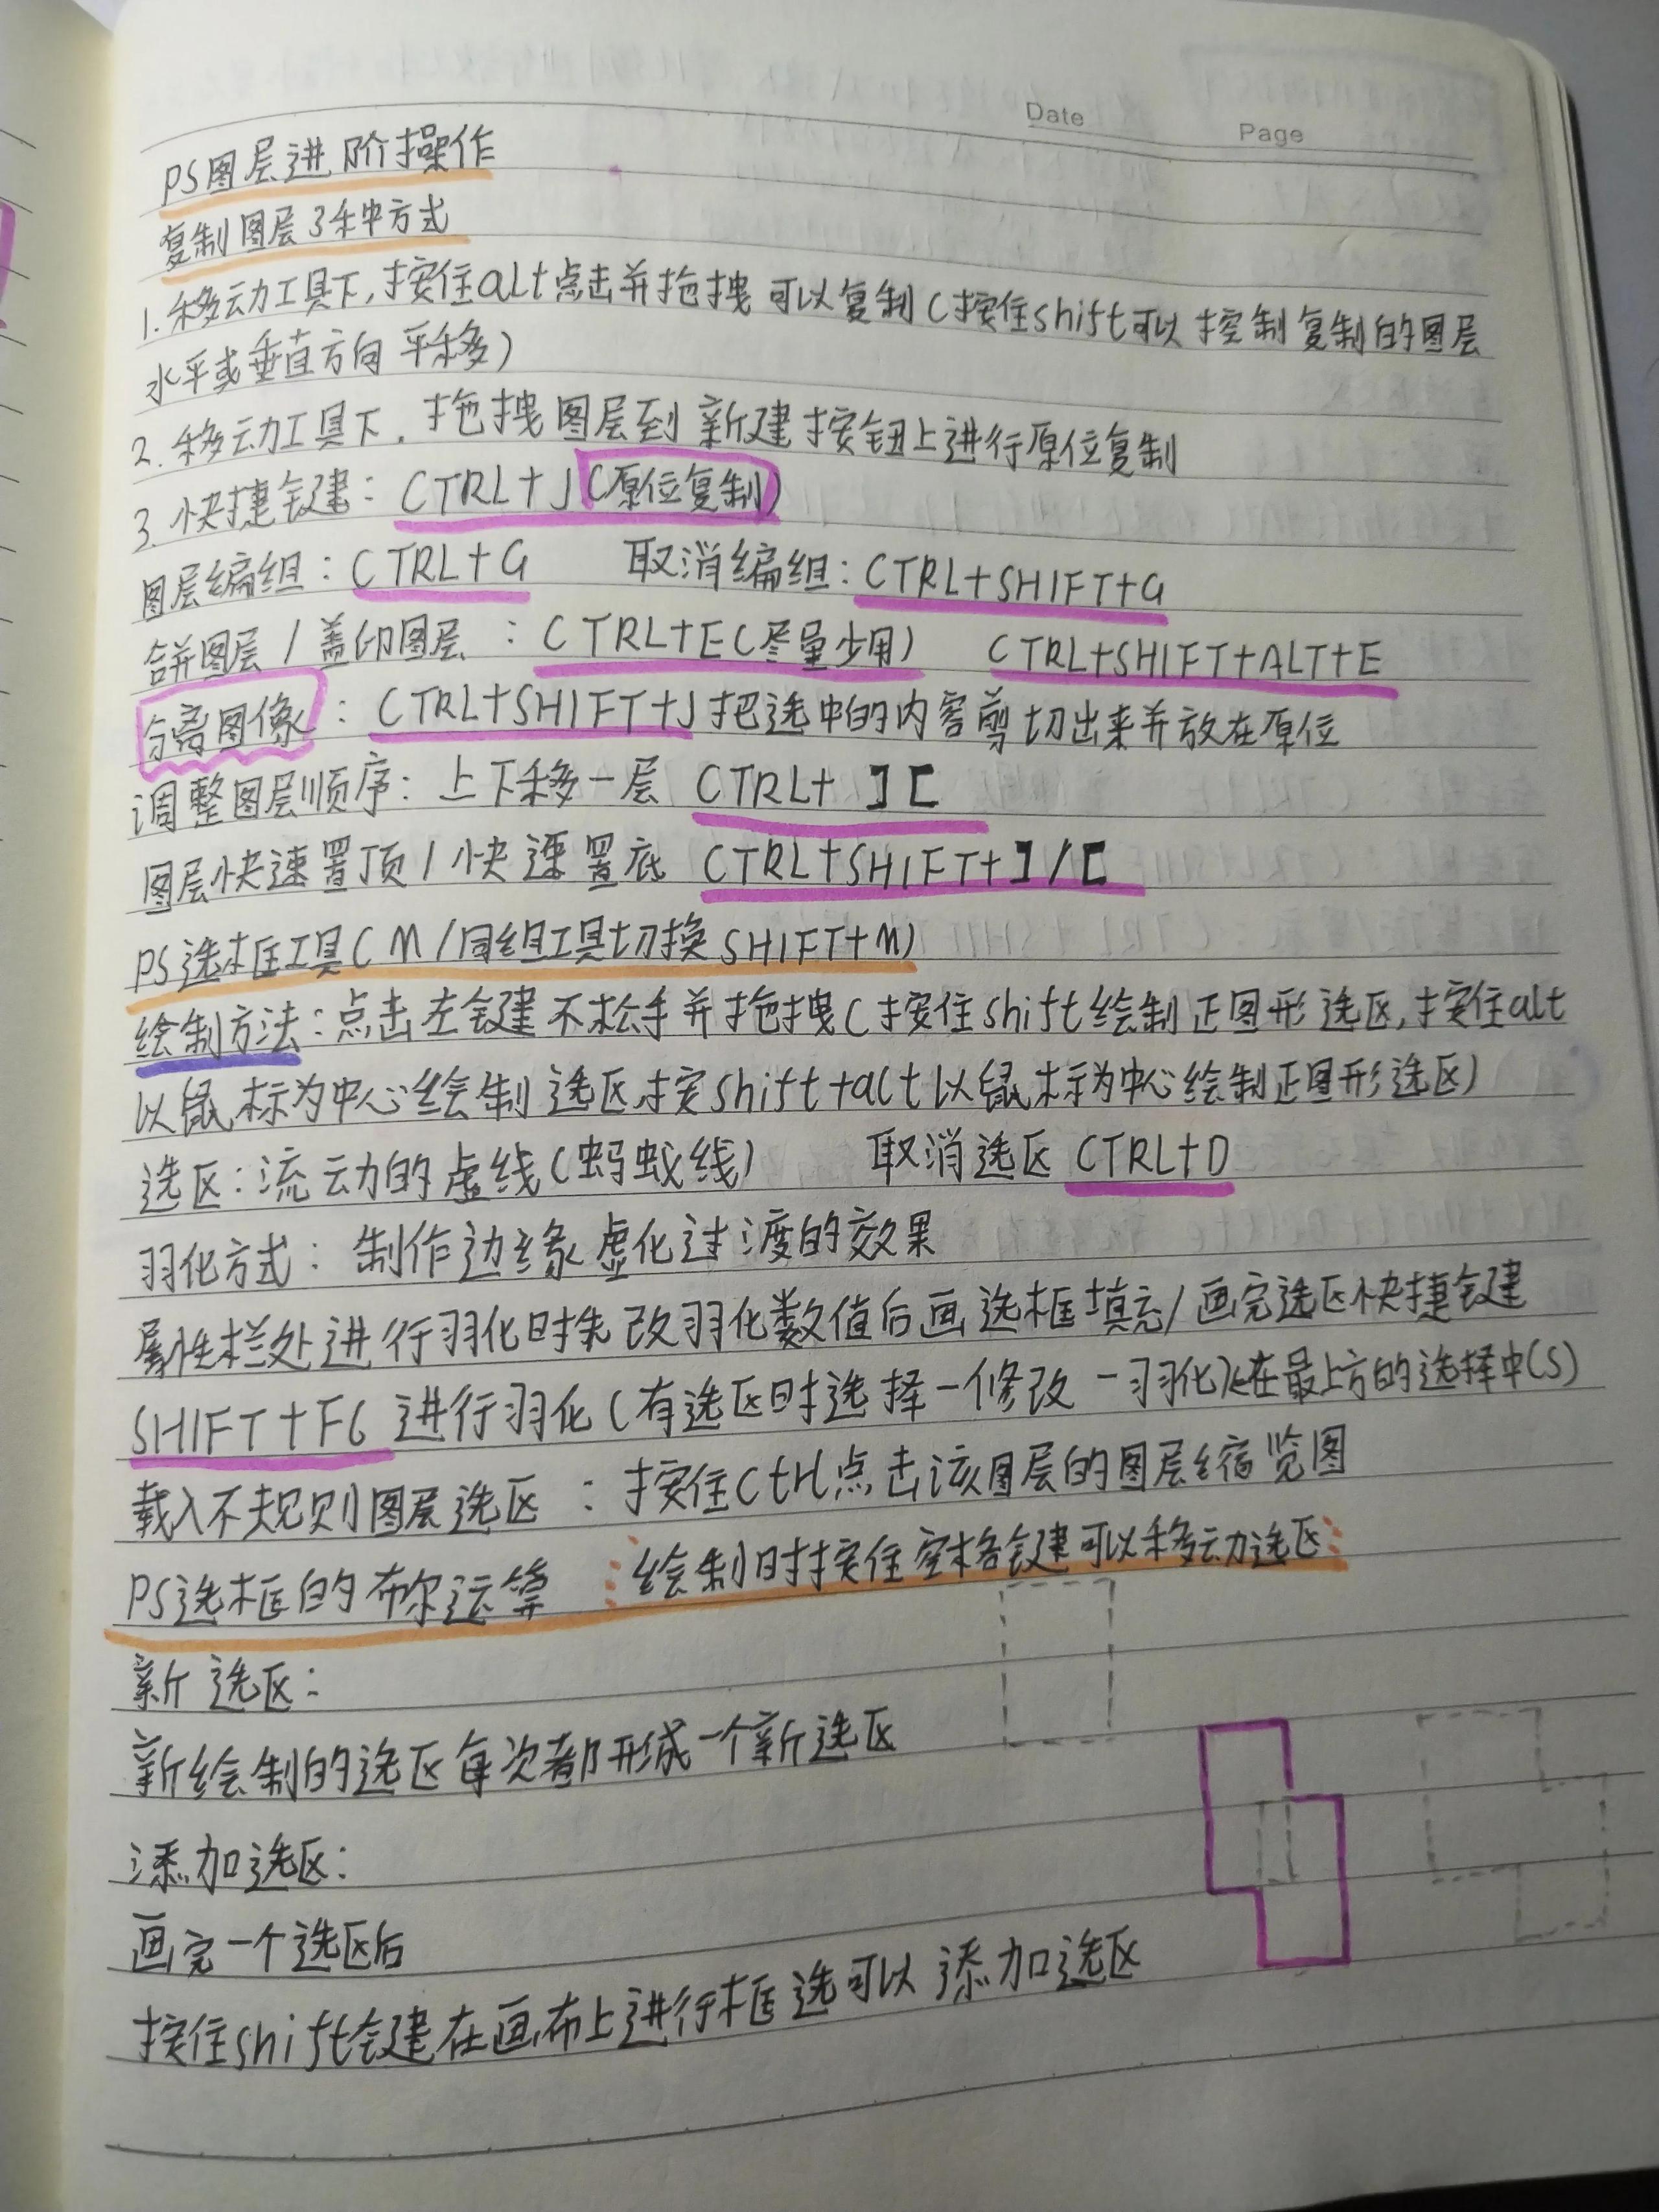 Date
Page
PS图层进阶操作
复制图层3种方式
1.移动工具下,按住alt点击并拖拽可以复制(按住shift可以控制复制的图层
水平或垂直方向平移)
2.移动工具下,拖拽图层到新建按钮上进行原位复制
3.快捷键:CTRL+J(原位复制)
图层编组:CTRL+G 取消编组:CTRL+SHIFT+G
合并图层/盖印图层:CTRL+E(尽量少用) CTRL+SHIFT+ALT+E
分离图像:CTRL+SHIFT+J把选中的内容剪切出来并放在原位
调整图层顺序:上下移一层 CTRL+ ][
图层快速置顶/快速置底 CTRL+SHIFT+]/[
PS选框工具(M/同组工具切换SHIFT+M)
绘制方法:点击左键不松手并拖拽(按住shift绘制正图形选区,按住alt
以鼠标为中心绘制选区,按shift+alt以鼠标为中心绘制正图形选区)
选区:流动的虚线(蚂蚁线) 取消选区CTRL+D
羽化方式:制作边缘虚化过渡的效果
属性栏处进行羽化时先改羽化数值后画选框填充/画完选区快捷键
SHIFT+F6进行羽化(有选区时选择一修改一羽化)在最上方的选择中(S)
载入不规则图层选区:按住Ctrl点击该图层的图层缩览图
PS选框的布尔运算 绘制时按住空格键可以移动选区
新选区:
新绘制的选区每次都形成一个新选区
添加选区:
画完一个选区后
按住shift键在画布上进行框选可以添加选区